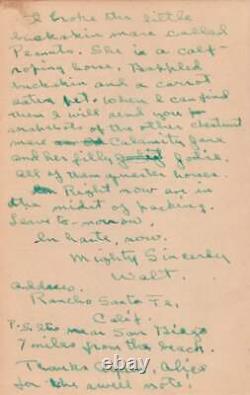 I broke the little
buckskin mare called
Peanuts. She is a calf-
roping horse. Dappled
buckskin and a carrot
eatin pet. When I can find
them I will send you
snapshots of the other chestnut
mare Calamity Jane
and her filly Josie.
All of them quarter horses.
Right now are in
the midst of packing.
Leave to-morrow.
In haste, now.
Mighty Sincerely
Walt.
Address.
Rancho Santa Fe,
Calif.
P.S. Its near San Diego
7 miles from the beach.
Thanks again, Alice
for the swell note.
© ebay.com